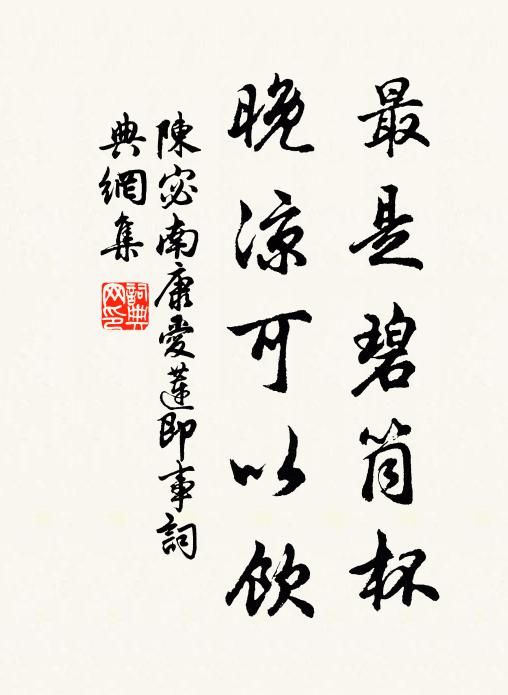 最是碧筒杯
晚凉可以飲
陳宓南康愛蓮即事詞
典網集
詞典
网印